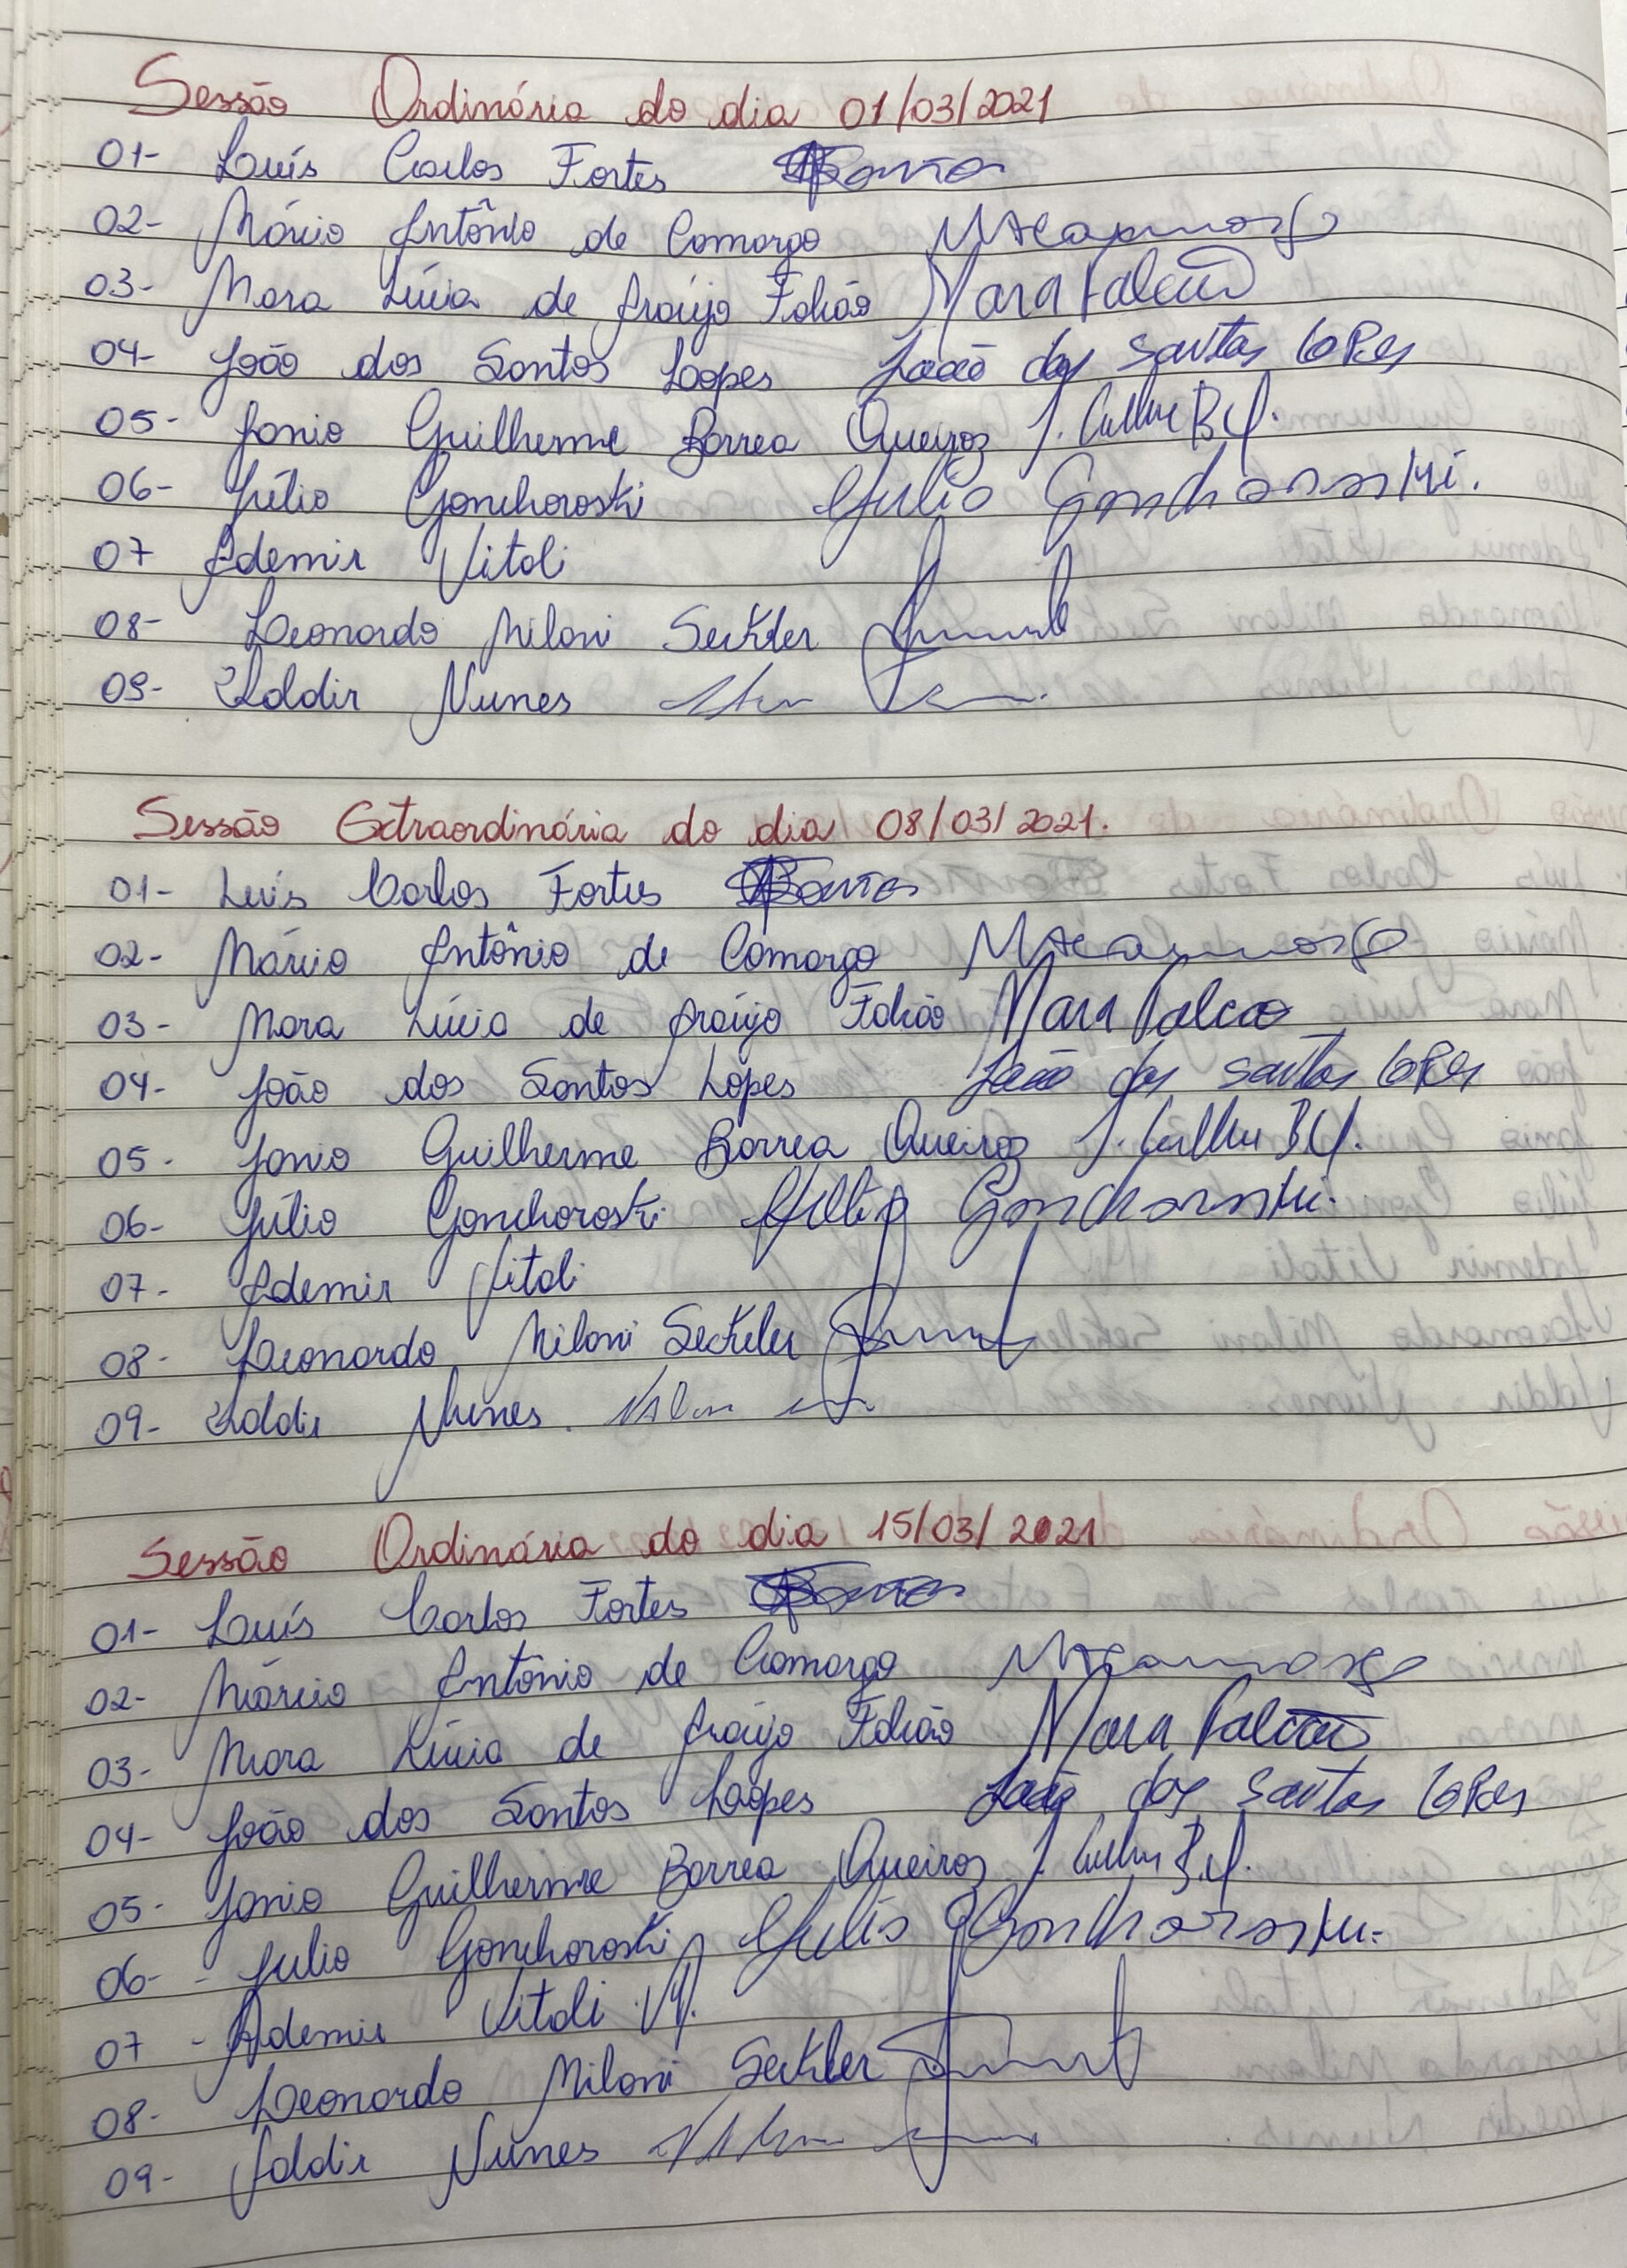 Sessão Ordinária do dia 01/03/2021
01- Luís Carlos Fortes
02- Márcio Antônio de Camargo MACamargo
03- Mara Lúcia de Araújo Falcão Mara Falcão
04- João dos Santos Loopes João dos Santos Lopes
05- Jonio Guilherme Borrea Queiroz J. Guilherme B. Q.
06- Júlio Gonchoroski Julio Gonchoroski.
07 Ademir Vitali
08- Leonardo Miloni Seckler
09- Valdir Nunes
Sessão Extraordinária do dia 08/03/2021.
01- Luís Carlos Fortes
02- Márcio Antônio de Camargo MACamargo
03- Mara Lúcia de Araújo Falcão Mara Falcao
04- João dos Santos Lopes João dos Santos Lopes
05- Jonio Guilherme Borrea Queiroz J. Guilherme B. Q.
06- Júlio Gonchoroski Julio Gonchoroski.
07- Ademir Vitali
08- Leonardo Miloni Seckeler
09- Valdir Nunes.
Sessão Ordinária do dia 15/03/2021
01- Luís Carlos Fortes
02- Márcio Antônio de Camargo MACamargo
03- Mara Lúcia de Araújo Falcão Mara Falcão
04- João dos Santos Loopes João dos Santos Lopes
05- Jonio Guilherme Borrea Queiroz J. Guilherme B. Q.
06- - Julio Gonchoroski Julio Gonchoroski.
07 - Ademir Vitali
08- Leonardo Miloni Seckler
09- Valdir Nunes